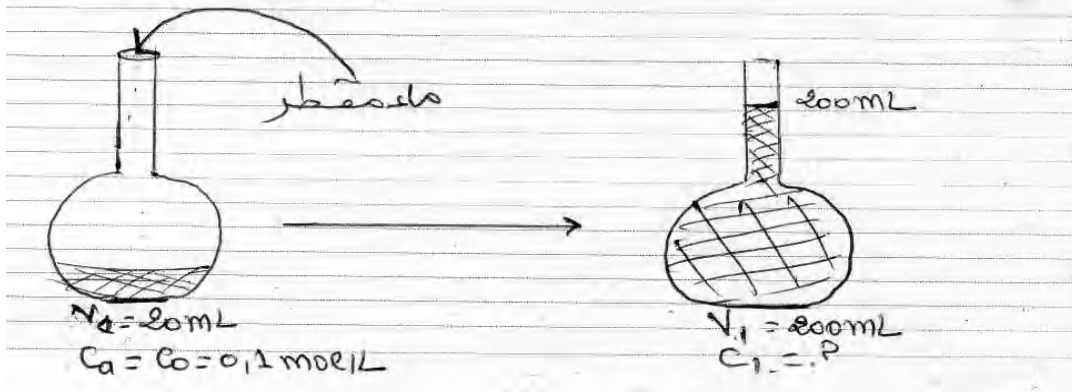 ماء مقطر
200mL
Va = 20mL
Ca = C0 = 0,1 mol/L
V1 = 200mL
C1 = ?